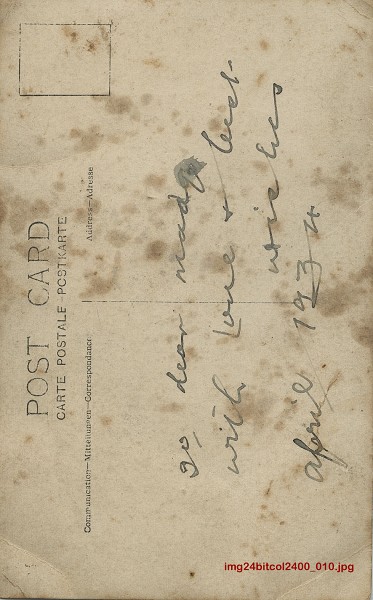 POST CARD
CARTE POSTALE POSTKARTE
Communication—Mitteilungen—Correspondance
Address—Adresse
To dear Madge
with Love & best
wishes
April 1934
img24bitcol2400_010.jpg